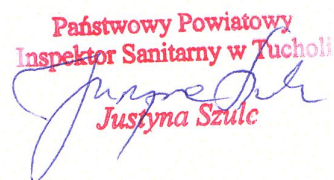 Państwowy Powiatowy
Inspektor Sanitarny w Tucholi
Justyna Szulc